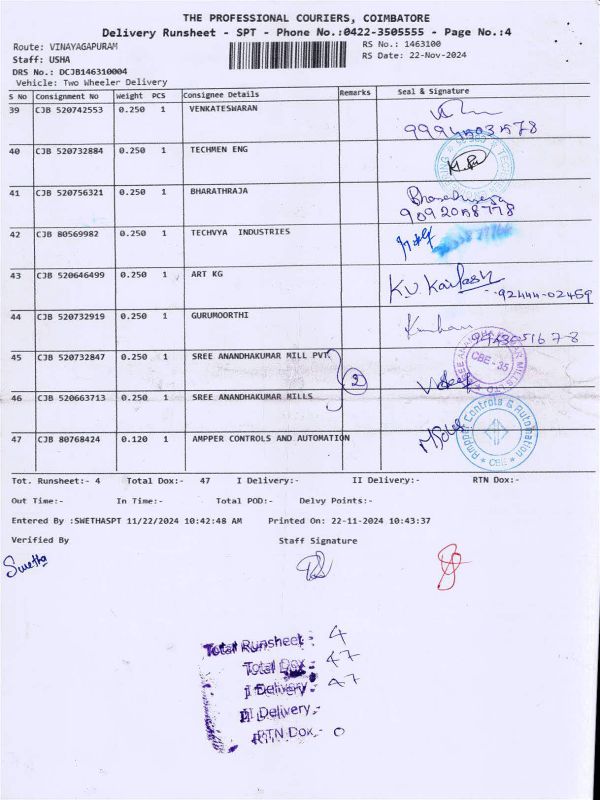 THE PROFESSIONAL COURIERS, COIMBATORE
Delivery Runsheet - SPT - Phone No.:0422-3505555 - Page No.:4
Route: VINAYAGAPURAM
RS No.: 1463100
Staff: USHA
RS Date: 22-Nov-2024
DRS No.: DCJB146310004
Vehicle: Two Wheeler Delivery
S No Consignment No Weight PCS Consignee Details Remarks Seal & Signature
39 CJB 520742553 0.250 1 VENKATESWARAN
40 CJB 520732884 0.250 1 TECHMEN ENG
41 CJB 520756321 0.250 1 BHARATHRAJA
9092058778
42 CJB 80569982 0.250 1 TECHVYA INDUSTRIES
43 CJB 520646499 0.250 1 ART KG K.V. Kailash
92444-02459
44 CJB 520732919 0.250 1 GURUMOORTHI
45 CJB 520732847 0.250 1 SREE ANANDHAKUMAR MILL PVT. CBE - 35
2
46 CJB 520663713 0.250 1 SREE ANANDHAKUMAR MILLS
47 CJB 80768424 0.120 1 AMPPER CONTROLS AND AUTOMATION Ampper Controls & Automation CBE
Tot. Runsheet:- 4 Total Dox:- 47 I Delivery:- II Delivery:- RTN Dox:-
Out Time:- In Time:- Total POD:- Delvy Points:-
Entered By :SWETHASPT 11/22/2024 10:42:48 AM Printed On: 22-11-2024 10:43:37
Verified By Staff Signature
Swetha
Total Runsheet:- 4
Total Dox:- 47
I Delivery:- 47
II Delivery:-
RTN Dox:- 0